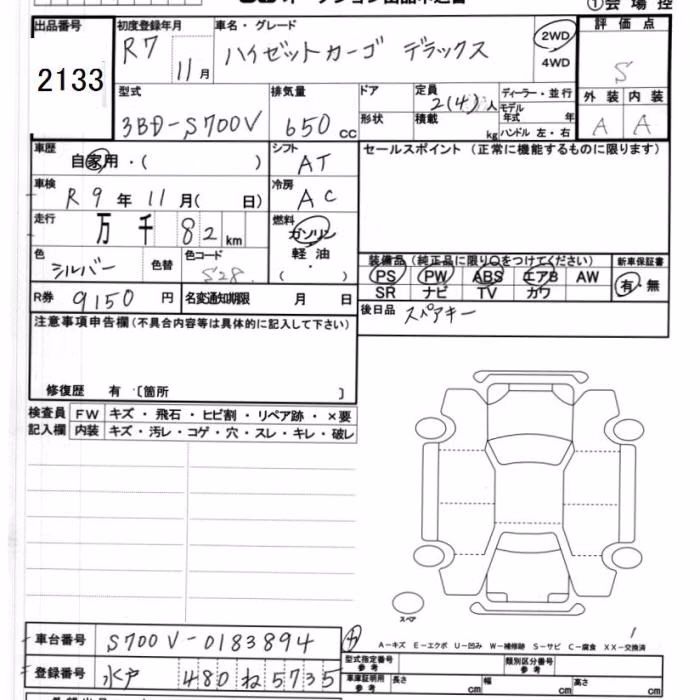 ①会場控
出品番号 初度登録年月 車名・グレード 評価点
2133 R7 11月 ハイゼットカーゴ デラックス 2WD 4WD S
型式 排気量 ドア 定員 ディーラー・並行 外装 内装
3BD-S700V 650cc 2(4)人 モデル 年式 年 A A
形状 積載 kg ハンドル 左・右
車歴 自家用・( ) シフト AT セールスポイント(正常に機能するものに限ります)
車検 R9年11月( 日) 冷房 AC
走行 万千82km 燃料 ガソリン
軽油
・
( )
色 シルバー 色替 色コード S28 装備品(純正品に限り○をつけてください) 新車保証書
PS PW ABS エアB AW 有・無
SR ナビ TV カワ
R券 9150円 名変通知期限 月 日 後日品 スペアキー
注意事項申告欄(不具合内容等は具体的に記入して下さい)
修復歴 有 〔箇所 〕
検査員 FW キズ・飛石・ヒビ割・リペア跡・×要
記入欄 内装 キズ・汚レ・コゲ・穴・スレ・キレ・破レ
スペア
A-キズ E-エクボ U-凹み W-補修跡 S-サビ C-腐食 XX-交換済
車台番号 S700V-0183894 型式指定番号 参考 類別区分番号 参考
登録番号 水戸 480 ね 5735 車庫証明用 参考 長さ cm 幅 cm 高さ cm